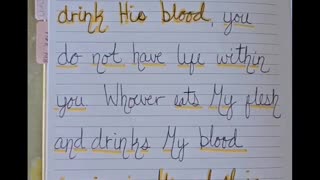 drink His blood, you
do not have life within
you. Whoever eats My flesh
and drinks My blood